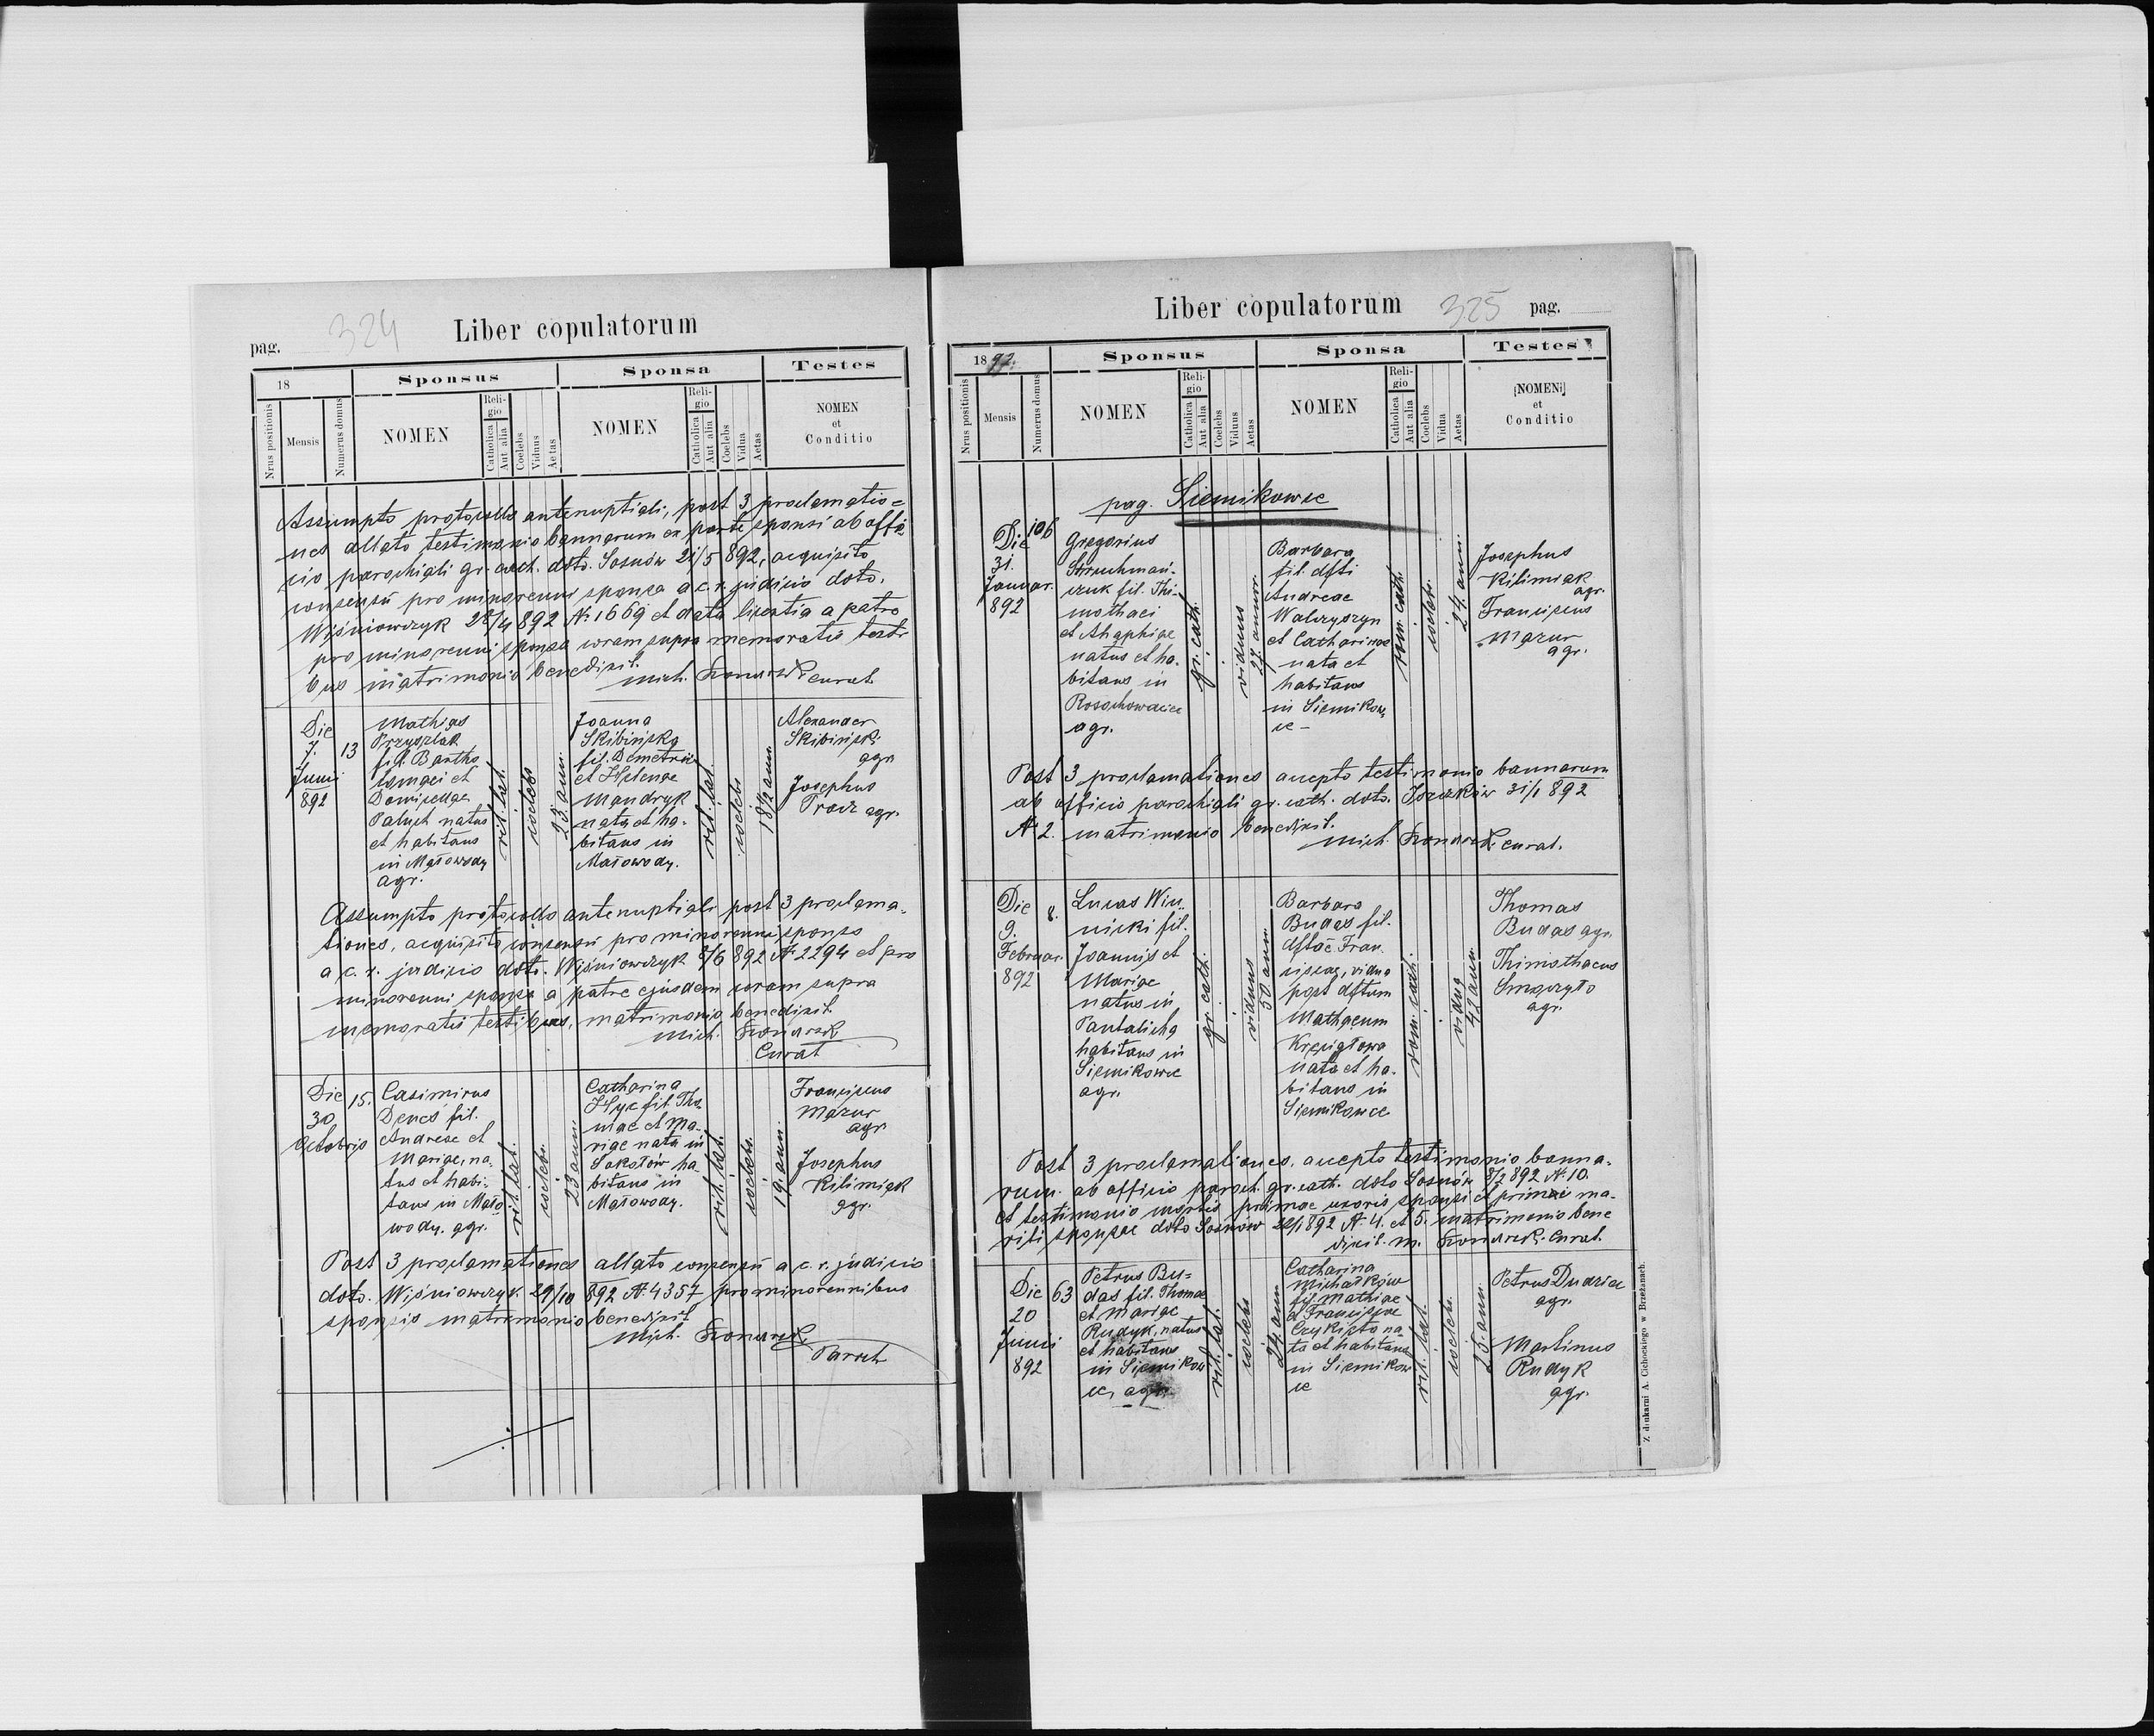 pag. 324 Liber copulatorum
18
Sponsus
Sponsa
Testes
Nrus positionis
Mensis
Numerus domus
NOMEN
Religio
Catholica
Aut alia
Coelebs
Viduus
Aetas
NOMEN
Religio
Catholica
Aut alia
Coelebs
Vidua
Aetas
NOMEN
et
Conditio
Assumpto protocollo antenuptiali, post 3 proclamatio=
nes allato testimonio bannorum ex parte sponsi ab offi
cio parochiali gr. cath. dato. Sosnów 21/5 892, acquisito
consensu pro minorenni sponsa a c. r. judicio dato.
Wiśniowczyk 28/4 892 N. 1669 et data licentia a patre
pro minorenni sponsa coram supra memoratis testi
bus matrimonio benedixit.
Mich. curat
Die
7.
Junii
892
13
Mathias
Przyszlak
fil. Bartho
lomaei et
Domicellae
Paluch natus
et habitans
in Małowody
agr.
rit. lat.
coelebs
23 ann.
Joanna
Skibińska
fil. Demetrii
et Helenae
Mandryk
nata et ha-
bitans in
Małowody.
rit. lat.
coelebs
18 1/2 ann.
Alexander
Skibiński
agr.
Josephus
Tracz agr.
Assumpto protocollo antenuptiali post 3 proclama-
tiones, acquisito consensu pro minorenni sponsa
a c. r. judicio dato. Wiśniowczyk 2/6 892 N. 2294 et pro
minorenni sponsa a patre ejusdem coram supra
memoratis testibus, matrimonio benedixit
Mich.
Curat
Die
30
Octobris
15.
Casimirus
Denes fil.
Andreae et
Mariae, na-
tus et habi-
tans in Mało
wody. agr.
rit. lat.
coelebs.
23 ann.
Catharina
Hyc fil. Tho
mae et Ma-
riae nata in
Sokołów ha-
bitans in
Małowody.
rit. lat.
coelebs.
19. ann.
Franciscus
Mazur
agr.
Josephus
Kilimiak
agr.
Post 3 proclamationes allato consensu a c. r. judicio
dato. Wiśniowczyk 29/10 892 N. 4357 pro minorennibus
sponsis matrimonio benedixit
Mich.
Paroch
Liber copulatorum 325 pag.
1892.
Sponsus
Sponsa
Testes
Nrus positionis
Mensis
Numerus domus
NOMEN
Religio
Catholica
Aut alia
Coelebs
Viduus
Aetas
NOMEN
Religio
Catholica
Aut alia
Coelebs
Vidua
Aetas
[NOMEN]
et
Conditio
pag. Siemikowce
Die
31.
Januar.
892
106
Gregorius
fil. Thi-
mothaei
et Ahaphiae
natus et ha-
bitans in
Rosochowaciec
agr.
gr. cath.
viduus
27. annor.
Barbara
fil. dfti
Andreae
Walczyszyn
et Catharinae
nata et
habitans
in Siemikow
ce -
rom. cath.
coelebs.
24. ann.
Josephus
Kilimiak
agr.
Franciscus
Mazur
agr.
Post 3 proclamationes accepto testimonio bannorum
ab officio parochiali gr. cath. dato. 31/1 892
N. 2. matrimonio benedixit.
Mich. curat.
Die
9.
Februar.
892
8.
Lucas Win-
nicki fil.
Joannis et
Mariae
natus in
Pantalicha
habitans in
Siemikowce
agr.
gr. cath.
viduus
50 ann
Barbara
Budas fil.
dftae Fran-
ciscae, vidua
post dftum
Mathaeum
nata et ha-
bitans in
Siemikowce
rom. cath.
vidua
42 ann
Thomas
Budas agr.
Thimothaeus
Smarzyło
agr.
Post 3 proclamationes, accepto testimonio banno-
rum ab officio paroch. gr. cath. dato Sosnów 8/2 892 N. 10.
et testimonio mortis primae uxoris sponsi et primi ma-
riti sponsae dato Sosnów 28/1 892 N. 4. et 5. matrimonio bene
dixit. M. Curat.
Die
20
Junii
892
63
Petrus Bu=
das fil. Thomae
et Mariae
Rudyk, natus
et habitans
in Siemikow
ce, agr.
rit. lat.
coelebs
24 ann
Catharina
Michałków
fil. Mathiae
et Franciscae
na-
ta et habitans
in Siemikow
ce
rit. lat.
coelebs.
25. ann.
Petrus Dudziak
agr.
Martinus
Rudyk
agr.
Z drukarni A. Cichockiego w Brzeżanach.